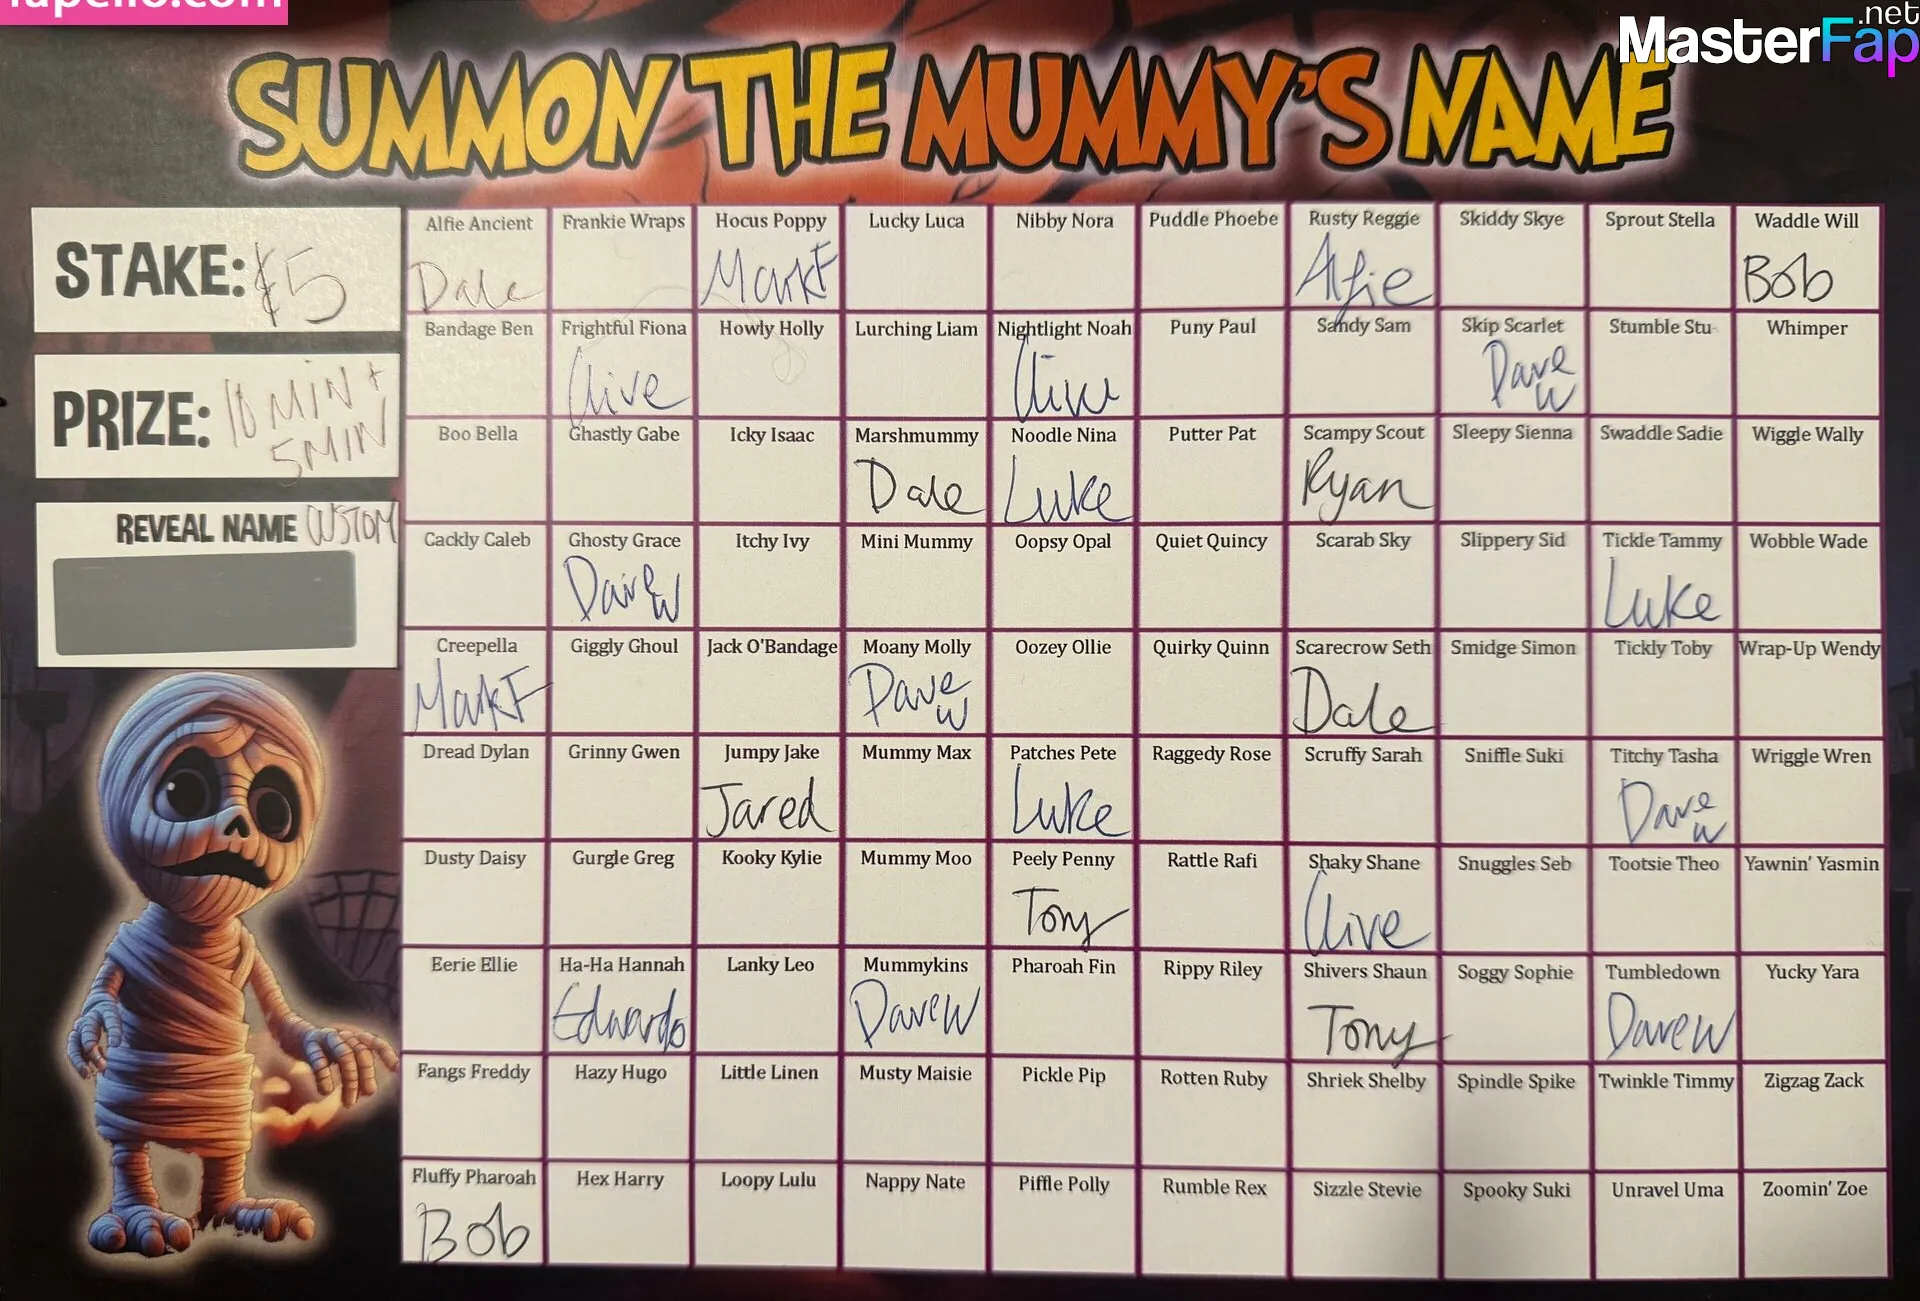 fapello.com
MasterFap
.net
SUMMON THE MUMMY'S NAME
STAKE: $5
PRIZE: 10 MIN +
5 MIN
REVEAL NAME CUSTOM
Alfie Ancient Frankie Wraps Hocus Poppy Lucky Luca Nibby Nora Puddle Phoebe Rusty Reggie Skiddy Skye Sprout Stella Waddle Will
Dale MarkF Alfie Bob
Bandage Ben Frightful Fiona Howly Holly Lurching Liam Nightlight Noah Puny Paul Sandy Sam Skip Scarlet Stumble Stu Whimper
Clive Clive Dave W
Boo Bella Ghastly Gabe Icky Isaac Marshmummy Noodle Nina Putter Pat Scampy Scout Sleepy Sienna Swaddle Sadie Wiggle Wally
Dale Luke Ryan
Cackly Caleb Ghosty Grace Itchy Ivy Mini Mummy Oopsy Opal Quiet Quincy Scarab Sky Slippery Sid Tickle Tammy Wobble Wade
Dave W Luke
Creepella Giggly Ghoul Jack O'Bandage Moany Molly Oozey Ollie Quirky Quinn Scarecrow Seth Smidge Simon Tickly Toby Wrap-Up Wendy
MarkF Dave W Dale
Dread Dylan Grinny Gwen Jumpy Jake Mummy Max Patches Pete Raggedy Rose Scruffy Sarah Sniffle Suki Titchy Tasha Wriggle Wren
Jared Luke Dave W
Dusty Daisy Gurgle Greg Kooky Kylie Mummy Moo Peely Penny Rattle Rafi Shaky Shane Snuggles Seb Tootsie Theo Yawnin' Yasmin
Tony Clive
Eerie Ellie Ha-Ha Hannah Lanky Leo Mummykins Pharoah Fin Rippy Riley Shivers Shaun Soggy Sophie Tumbledown Yucky Yara
Edwardo Dave W Tony Dave W
Fangs Freddy Hazy Hugo Little Linen Musty Maisie Pickle Pip Rotten Ruby Shriek Shelby Spindle Spike Twinkle Timmy Zigzag Zack
Fluffy Pharoah Hex Harry Loopy Lulu Nappy Nate Piffle Polly Rumble Rex Sizzle Stevie Spooky Suki Unravel Uma Zoomin' Zoe
Bob